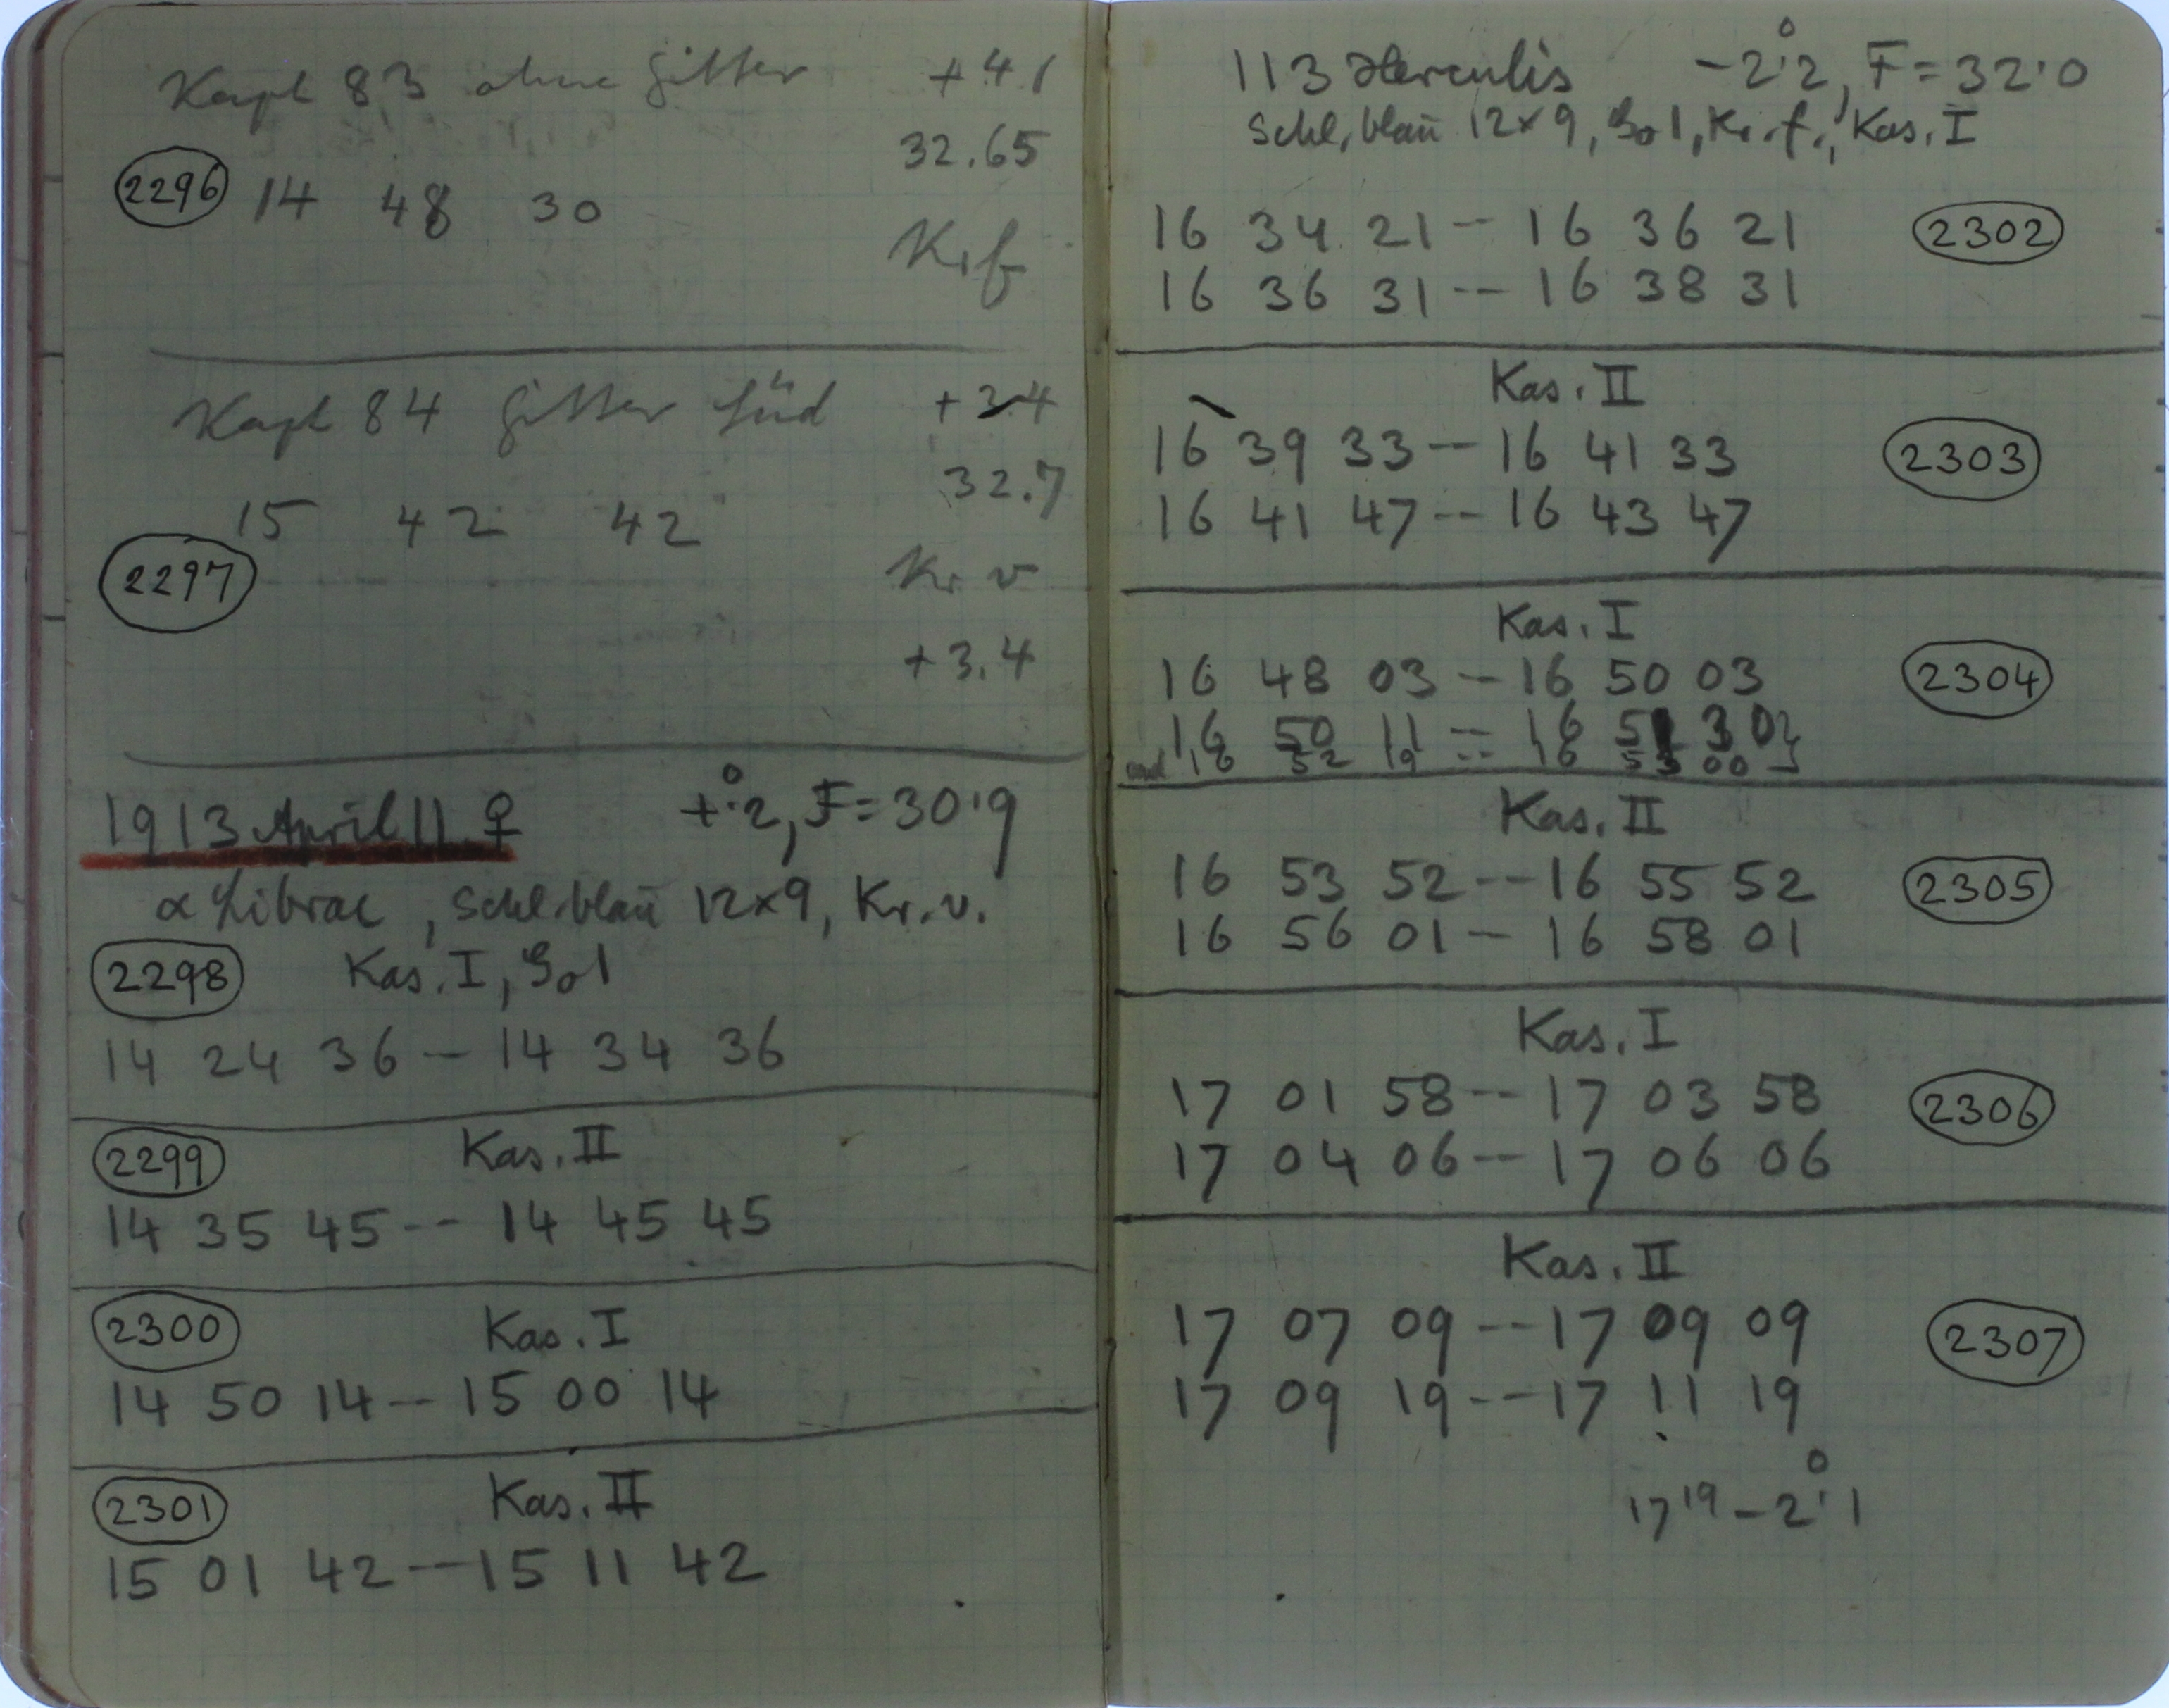 Kapt 83 ohne Gitter +4.1
32.65
2296 14 48 30
Kr f
Kapt 84 Gitter Süd +3.4
32.7
15 42 42
2297
Kr v
+3.4
1913 April 11 ♀ +°.2, F=30.9
α Librae, Schl. blau 12×9, Kr. v.
2298 Kas. I, Gol
14 24 36 -- 14 34 36
2299 Kas. II
14 35 45 -- 14 45 45
2300 Kas. I
14 50 14 -- 15 00 14
2301 Kas. II
15 01 42 -- 15 11 42
113 Herculis -2°.2, F=32.0
Schl. blau 12×9, Gol, Kr. f., Kas. I
16 34 21 -- 16 36 21 2302
16 36 31 -- 16 38 31
Kas. II
16 39 33 -- 16 41 33 2303
16 41 47 -- 16 43 47
Kas. I
16 48 03 -- 16 50 03 2304
16 50 11 -- 16 51 30
16 52 19 -- 16 53 00
Kas. II
16 53 52 -- 16 55 52 2305
16 56 01 -- 16 58 01
Kas. I
17 01 58 -- 17 03 58 2306
17 04 06 -- 17 06 06
Kas. II
17 07 09 -- 17 09 09 2307
17 09 19 -- 17 11 19
17 19 -2°.1